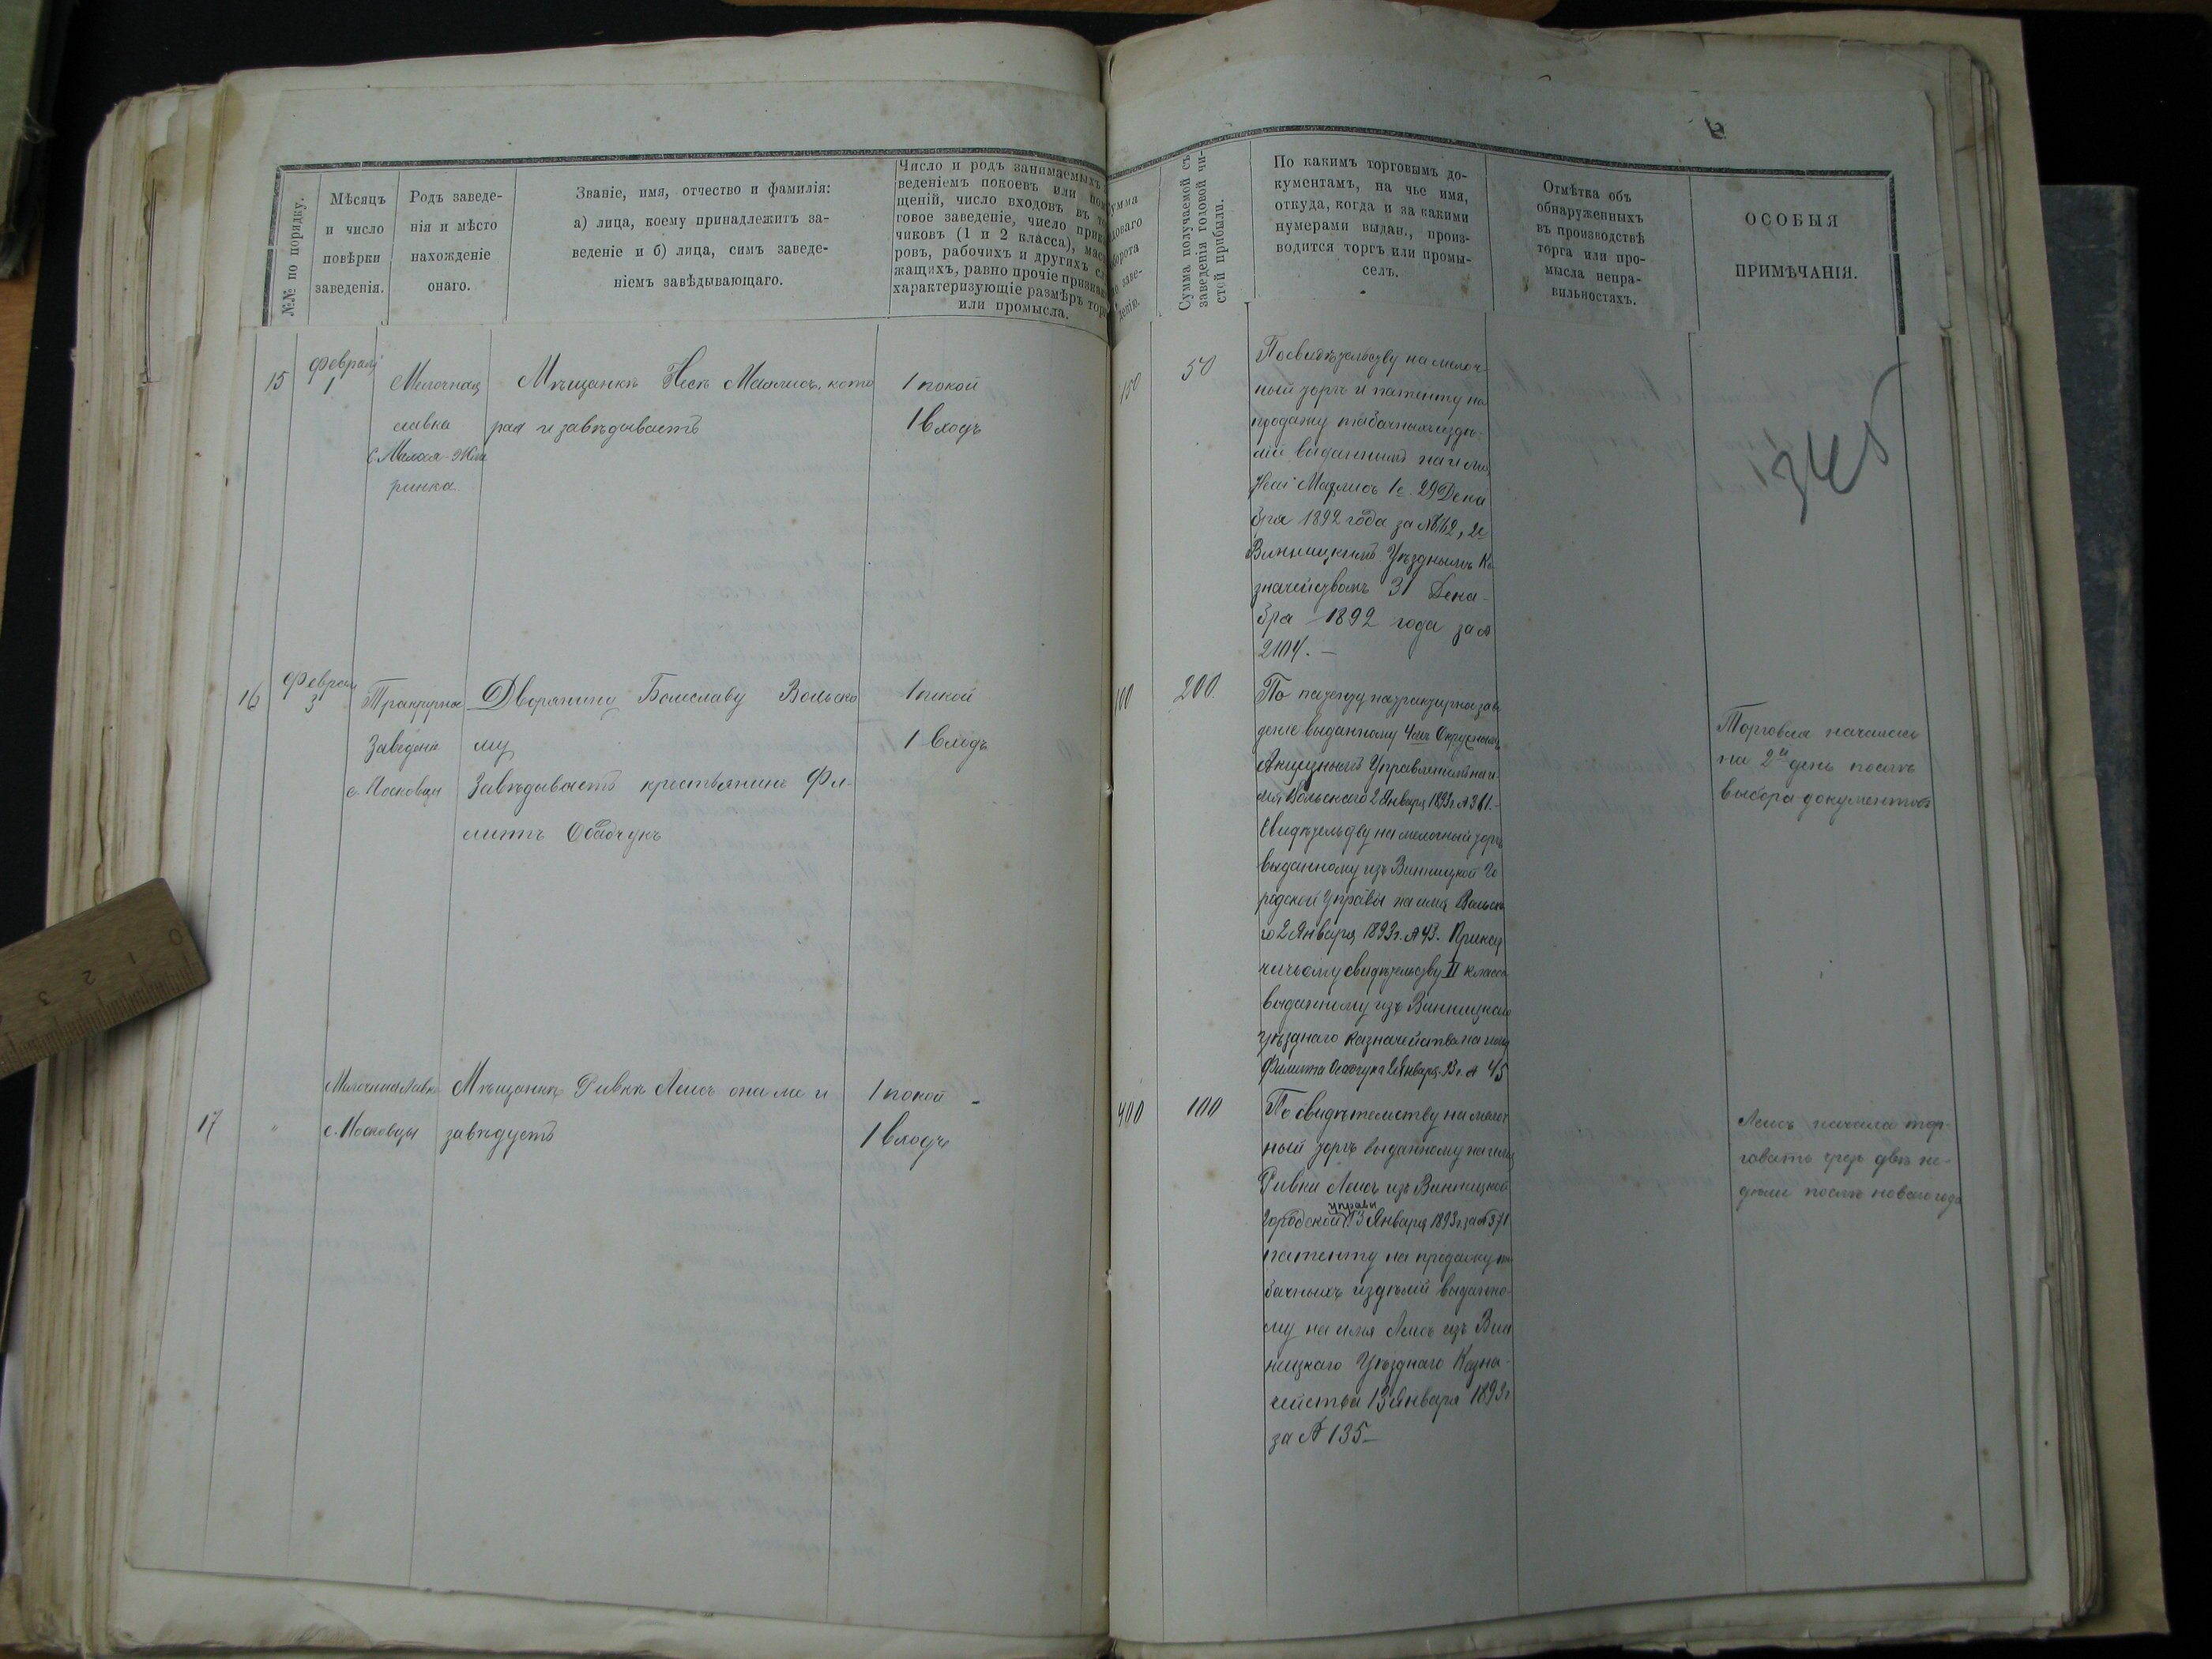 №№ по порядку.
Мѣсяцъ
и число
повѣрки
заведенія.
Родъ заведе-
нія и мѣсто
нахожденіе
онаго.
Званіе, имя, отчество и фамилія:
а) лица, коему принадлежитъ за-
веденіе и б) лица, симъ заведе-
ніемъ завѣдывающаго.
Число и родъ занимаемыхъ
веденіемъ покоевъ или пом
щеній, число входовъ въ то
говое заведеніе, число прика
чиковъ (1 и 2 класса), маст
ровъ, рабочихъ и другихъ сл
жащихъ, равно прочіе признаки
характеризующіе размѣръ торг
или промысла.
Сумма
доваго
оборота
по заве-
денію.
Сумма получаемой съ
заведенія годовой чи-
стой прибыли.
По какимъ торговымъ до-
кументамъ, на чье имя,
откуда, когда и за какими
нумерами выдан., произ-
водится торгъ или промы-
селъ.
Отмѣтка объ
обнаруженныхъ
въ производствѣ
торга или про-
мысла непра-
вильностяхъ.
ОСОБЫЯ
ПРИМѢЧАНІЯ.
15
Февраля
1
Мелочная
лавка
с. Малая-Жме
ринка.
Мѣщанкѣ Несѣ котo
рая и завѣдываетъ
1 покой
1 входъ
150
50
По свидѣтельству на мелоч
ный торгъ и патенту на
продажу табачныхъ издѣ-
лій выданнымъ на имя
1е 29 Дека
бря 1892 года за № 162, 2е
Винницкимъ Уѣзднымъ Ка
значействомъ 31 Дека-
бря 1892 года за №
2104. —
345
16
Февраля
3
Трактирное
Заведеніе
с. Носковцы
Дворянину Болеславу Вольско
му
Завѣдываетъ крестьянинъ Фи-
липъ
1 покой
1 входъ
200
По патенту на трактирное заве
деніе выданному 4мъ Окружнымъ
Акцизнымъ Управленіемъ на и-
мя Вольскаго 2 Января 1893 г. № 361.—
Свидѣтельству на мелочный торгъ
выданному изъ Винницкой Го
родской Управы на имя Вольска
го 2 Января 1893 г. № 43. Приказ
чичьему свидѣтельству II класса
выданному изъ Винницкаго
уѣзднаго Казначейства на имя
Филиппа 2 Января 93 г. № 45
Торговля началась
на 2й день послѣ
выбора документовъ
17
"
Мелочная Лавка
с. Носковцы
Мѣщанкѣ Ривкѣ Лемсъ она же и
завѣдуетъ
1 покой
1 входъ
400
100
По свидѣтельству на мелоч
ный торгъ выданному на имя
Ривки Лемсъ изъ Винницкой
управы
Городской 13 Января 1893 г. за № 371
патенту на продажу та
бачныхъ издѣлій выданно-
му на имя Лемсъ изъ Вин
ницкаго Уѣзднаго Казна-
чейства 13 Января 1893 г
за № 135 —
Лемсъ начала тор-
говать чрезъ двѣ не-
дѣли послѣ новаго года
0
1
2
3